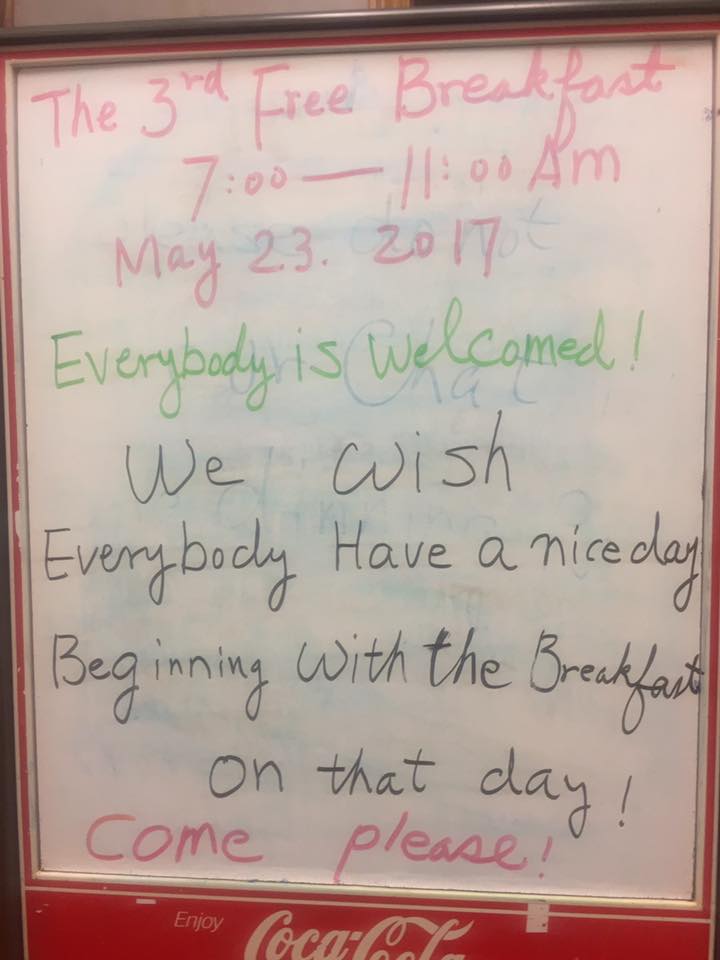 The 3rd Free Breakfast
7:00 — 11:00 Am
May 23. 2017
Everybody is welcomed!
We wish
Everybody Have a nice day
Beginning with the Breakfast
on that day!
Come please!
Enjoy
Coca-Cola